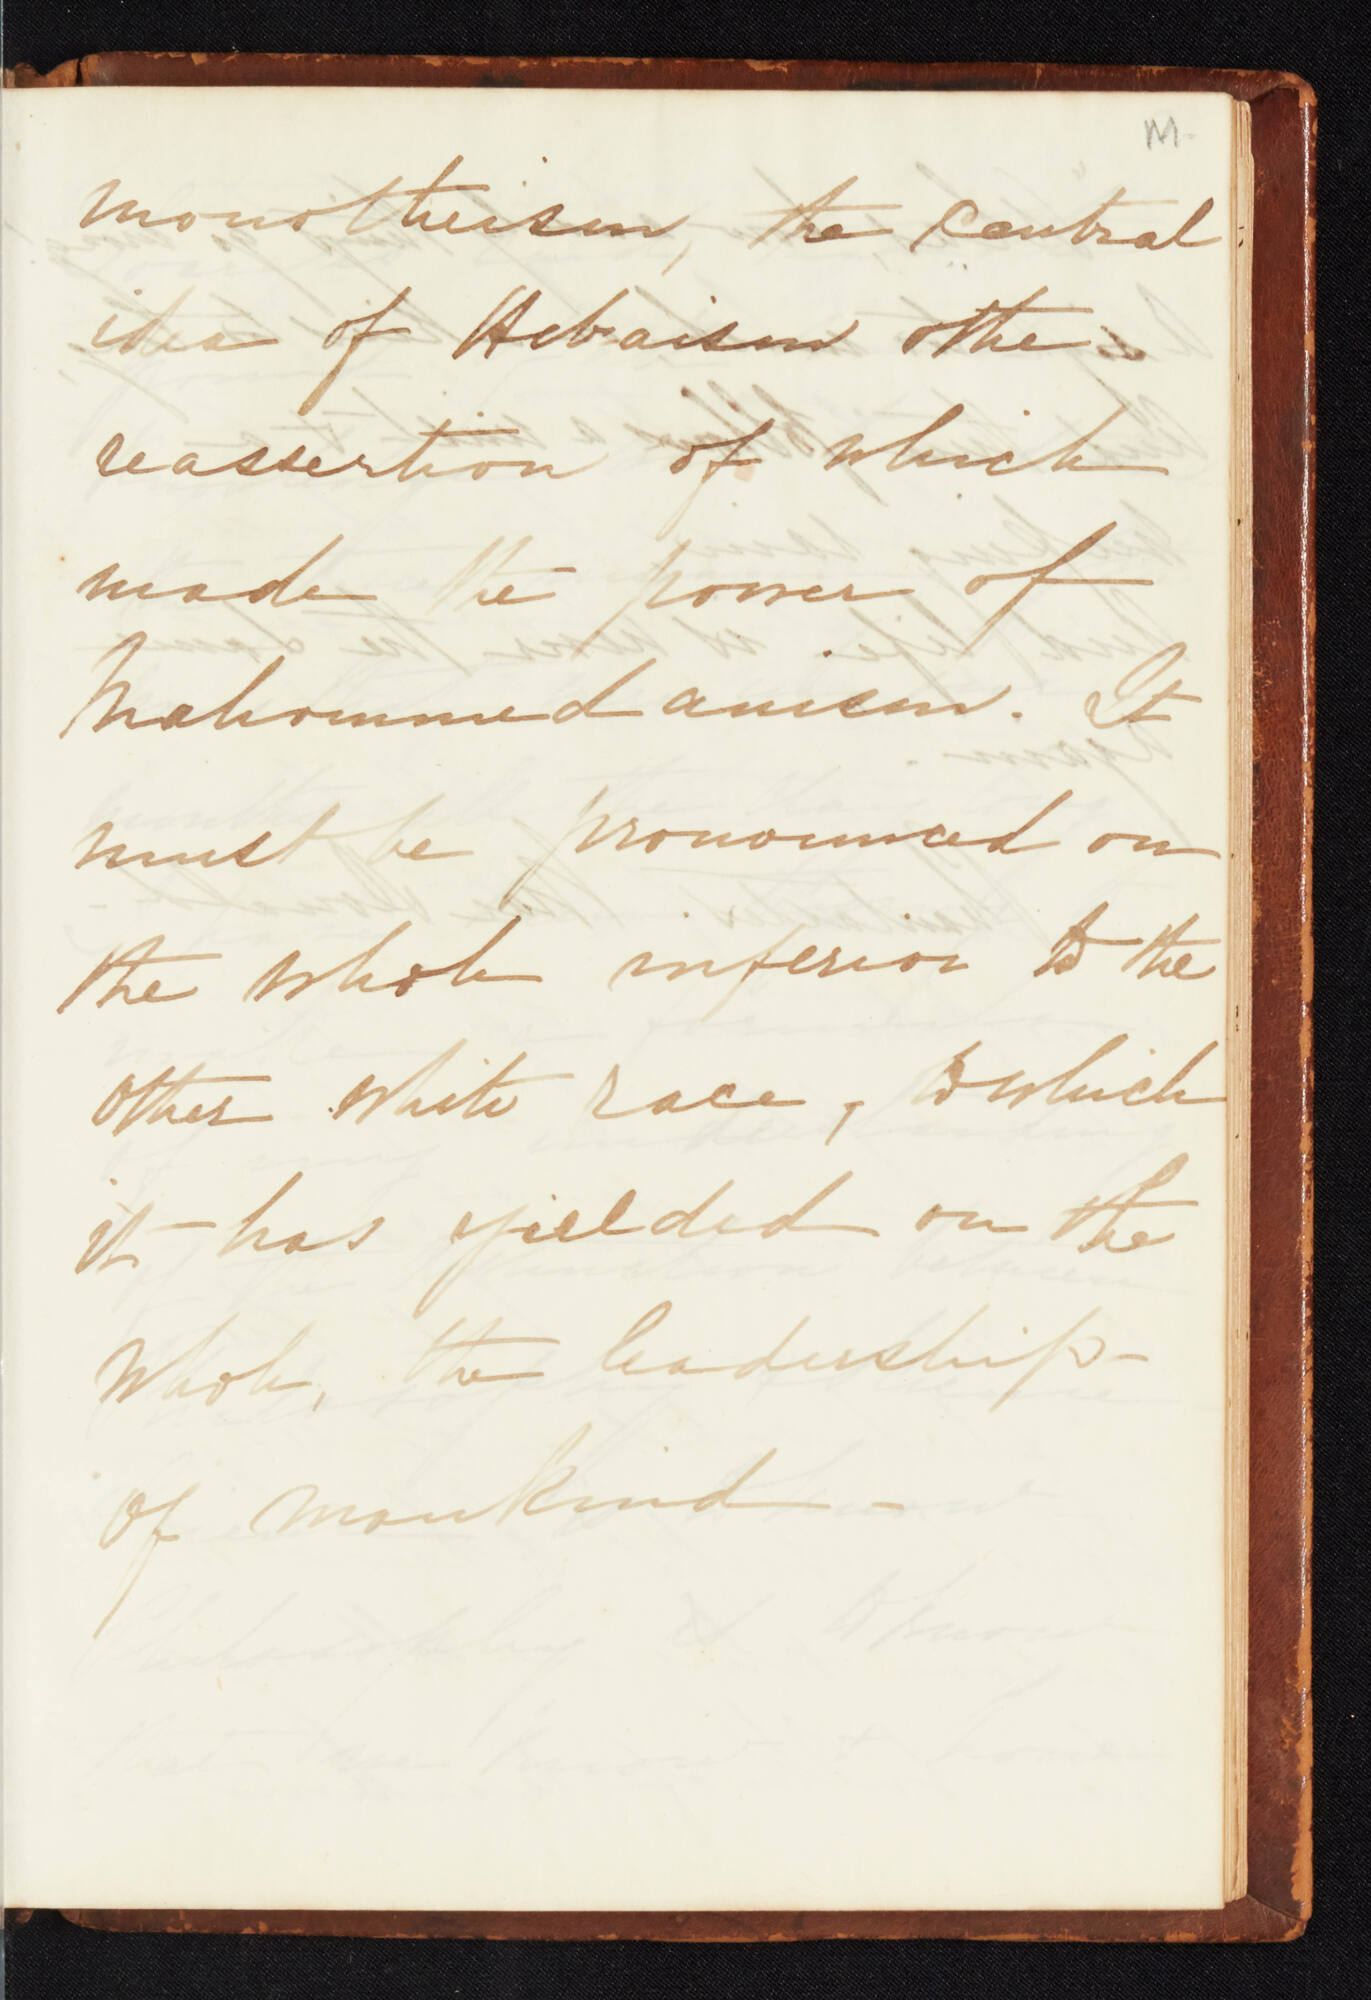 M.
monotheism, the central
idea of Hebraism & the
reassertion of which
made the power of
Mahommedanism. It
must be pronounced on
the whole inferior to the
other white race, to which
it has yielded on the
whole, the leadership
of mankind -